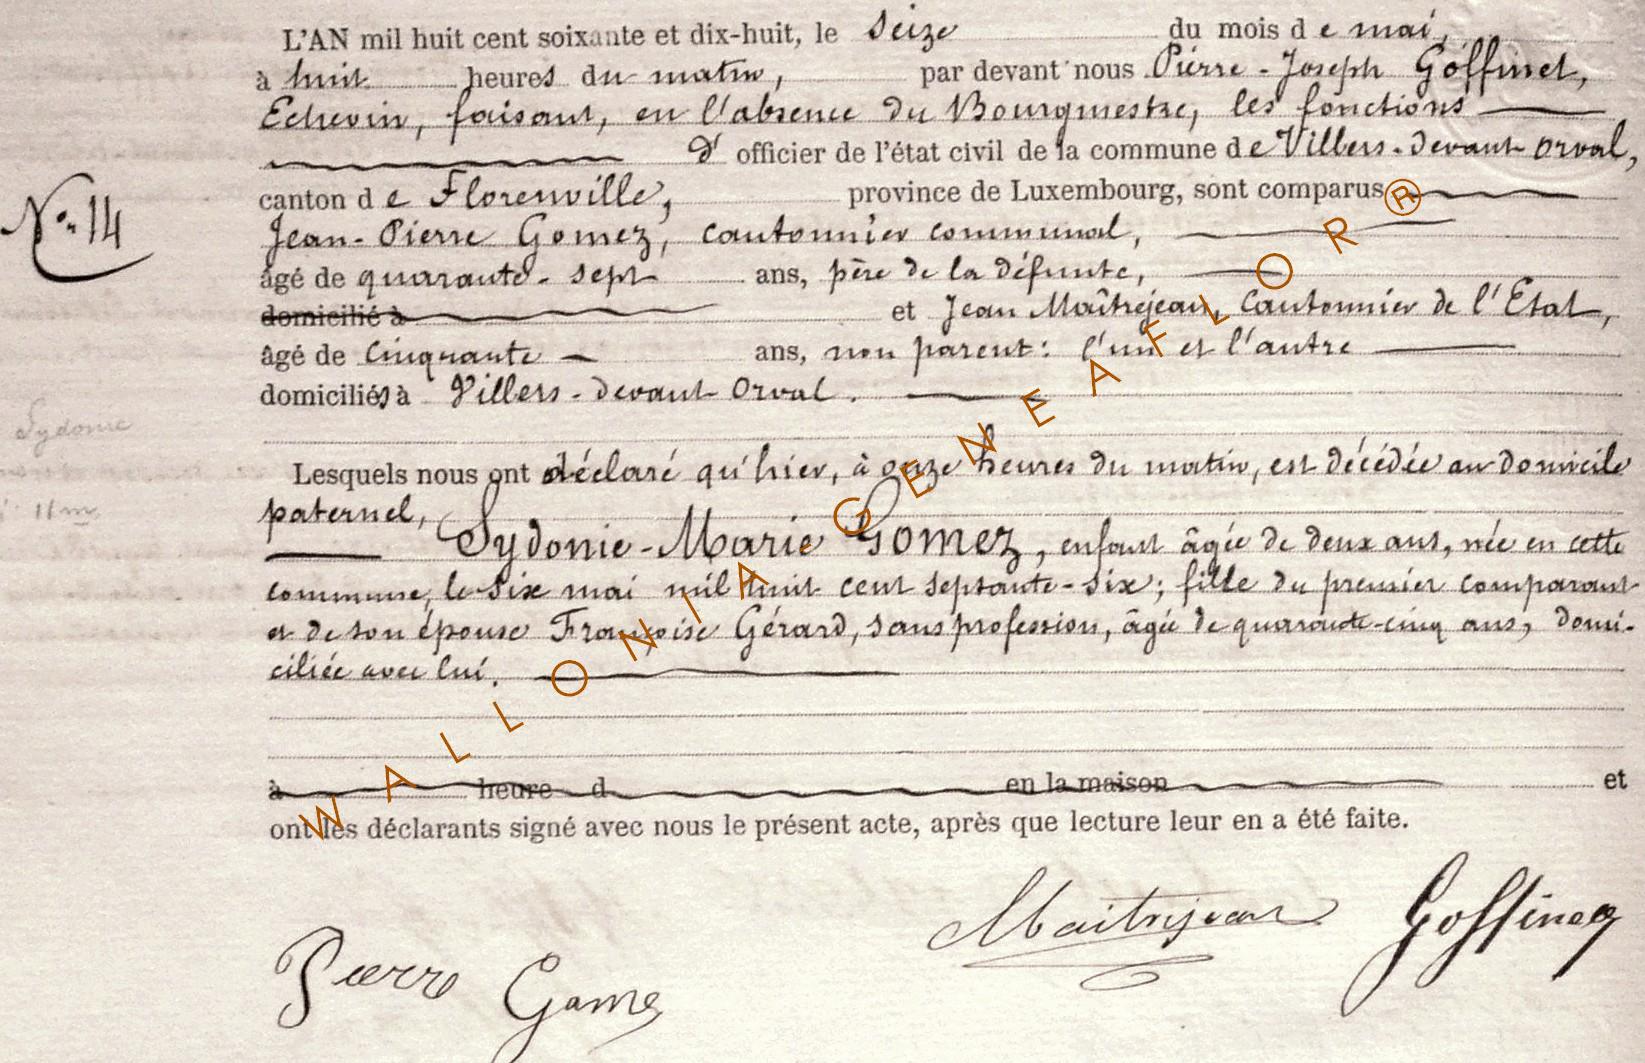 L'AN mil huit cent soixante et dix-huit, le seize du mois de mai,
à huit heures du matin, par devant nous Pierre-Joseph Goffinet,
Echevin, faisant, en l'absence du Bourgmestre, les fonctions
d' officier de l'état civil de la commune de Villers-devant-Orval,
canton de Florenville, province de Luxembourg, sont comparus
N° 14
Jean-Pierre Gomez, cantonnier communal,
âgé de quarante-sept ans, père de la défunte,
domicilié à et Jean Maîtrejean, Cantonnier de l'Etat,
âgé de cinquante ans, non parent: l'un et l'autre
domiciliés à Villers-devant-Orval.
Sydonie
Lesquels nous ont déclaré qu'hier, à onze heures du matin, est décédée au domicile
paternel,
11 m
Sydonie-Marie Gomez, enfant âgée de deux ans, née en cette
commune, le six mai mil huit cent septante-six; fille du premier comparant
et de son épouse Françoise Gérard, sans profession, âgée de quarante-cinq ans, domi-
ciliée avec lui.
à heure d en la maison et
ont les déclarants signé avec nous le présent acte, après que lecture leur en a été faite.
Maitrejean Goffinet
Pierre Gomez
WALLONIA GENEAFLOR ®